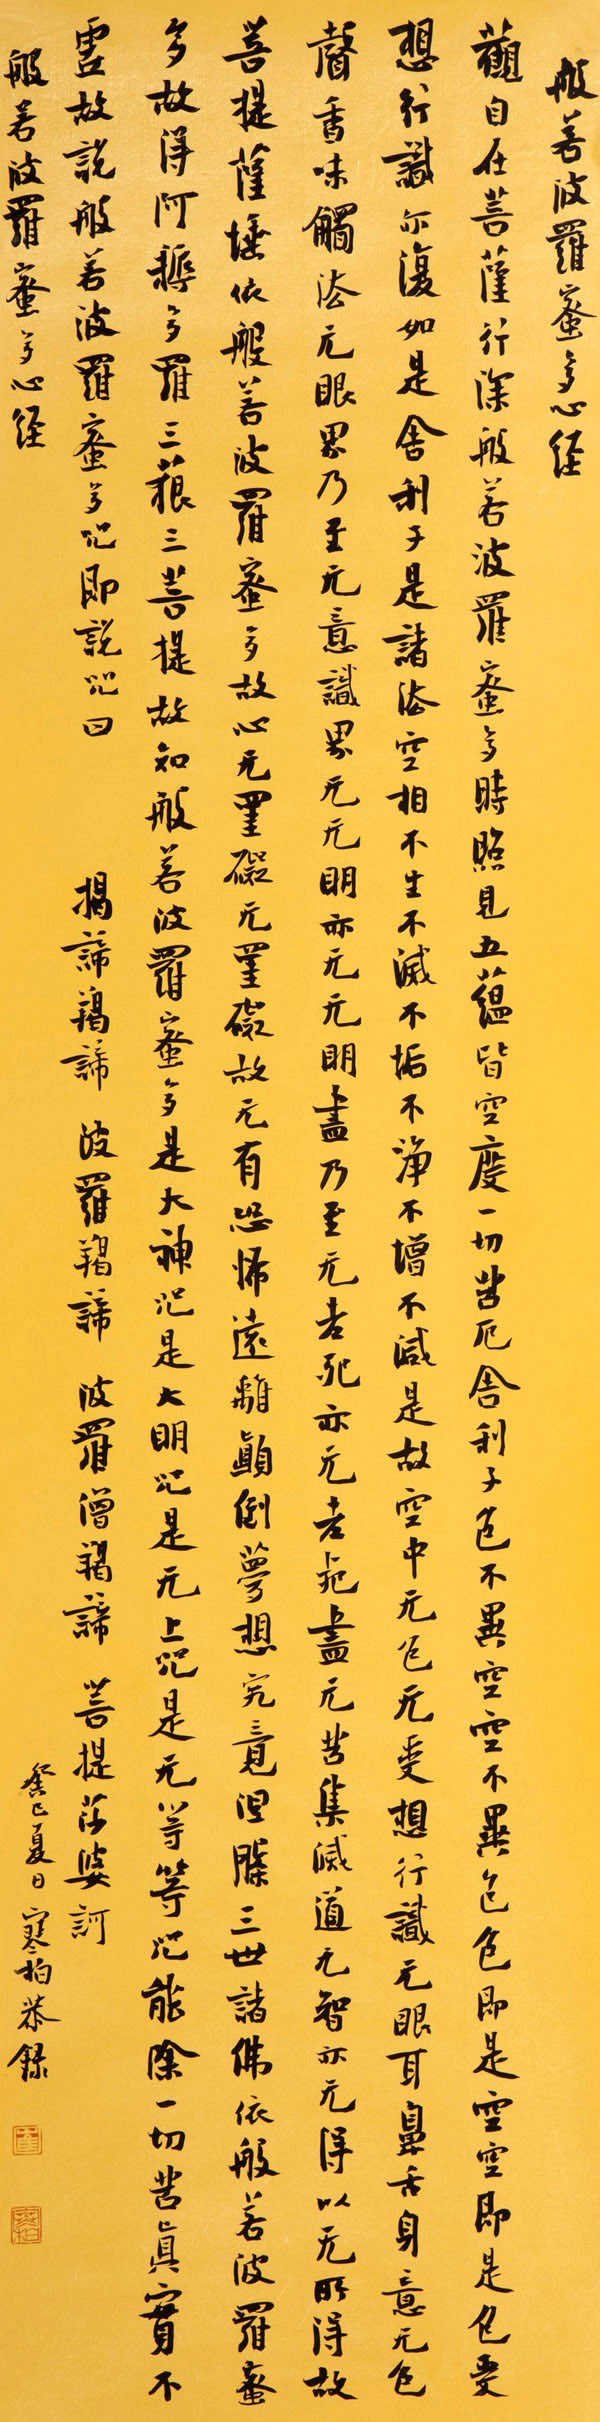 般若波羅蜜多心經
觀自在菩薩行深般若波羅蜜多時照見五蘊皆空度一切苦厄舍利子色不異空空不異色色即是空空即是色受
想行識亦復如是舍利子是諸法空相不生不滅不垢不淨不增不減是故空中无色无受想行識无眼耳鼻舌身意无色
聲香味觸法无眼界乃至无意識界无无明亦无无明盡乃至无老死亦无老死盡无苦集滅道无智亦无得以无所得故
菩提薩埵依般若波羅蜜多故心无罣礙无罣礙故无有恐怖遠離顛倒夢想究竟涅槃三世諸佛依般若波羅蜜
多故得阿耨多羅三藐三菩提故知般若波羅蜜多是大神咒是大明咒是无上咒是无等等咒能除一切苦真實不
虛故說般若波羅蜜多咒即說咒曰 揭諦羯諦 波羅羯諦 波羅僧羯諦 菩提莎婆訶
般若波羅蜜多心經
癸巳夏日寒柏恭錄